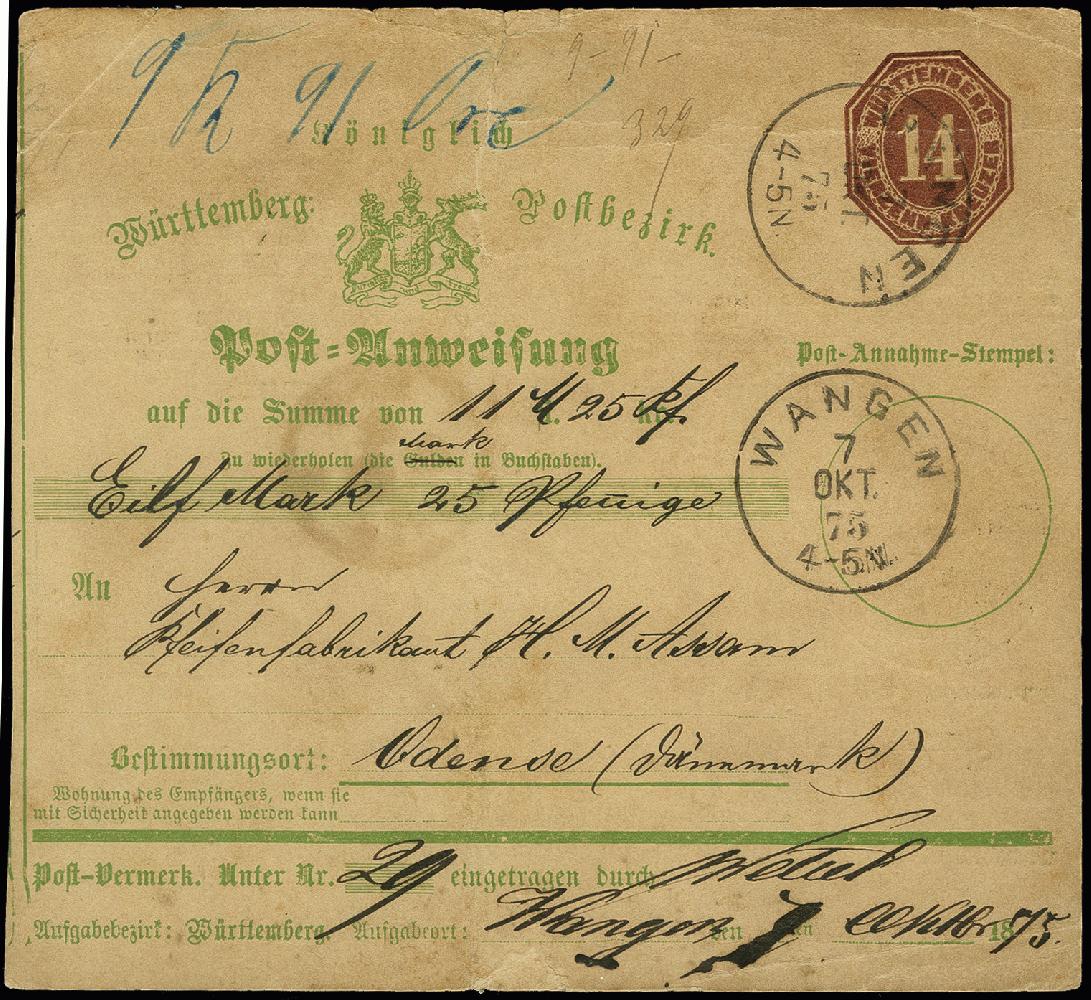 9 K 91 Ore
9-91-
329
Königlich
Württemberg. Postbezirk.
WÜRTTEMBERG
14
VIERZEHN KREUZER
WANGEN
7
OKT
75
4-5N.
Post-Anweisung
Post-Annahme-Stempel:
auf die Summe von 11 M 25 Pf.
Mark
Zu wiederholen (die Gulden in Buchstaben).
Eilf Mark 25 Pfennige
WANGEN
7
OKT.
75
4-5N.
An Herrn
Pfeifenfabrikant H. M. Assam
Bestimmungsort: Odense (Dänemark)
Wohnung des Empfängers, wenn sie
mit Sicherheit angegeben werden kann
Post-Vermerk. Unter Nr. 29 eingetragen durch
Aufgabebezirk: Württemberg. Aufgabeort: Wangen den 7 ten Oktbr 1875.